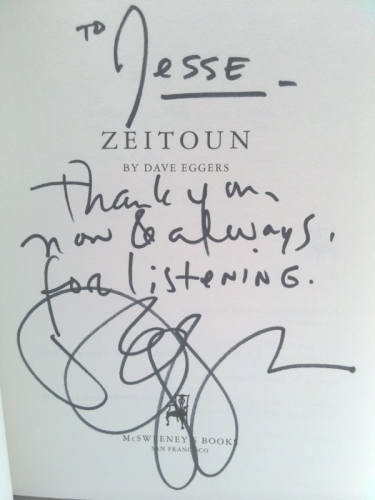 TO
Jesse
ZEITOUN
BY DAVE EGGERS
Thank you,
now & always,
for listening.
McSWEENEY'S BOOKS
SAN FRANCISCO